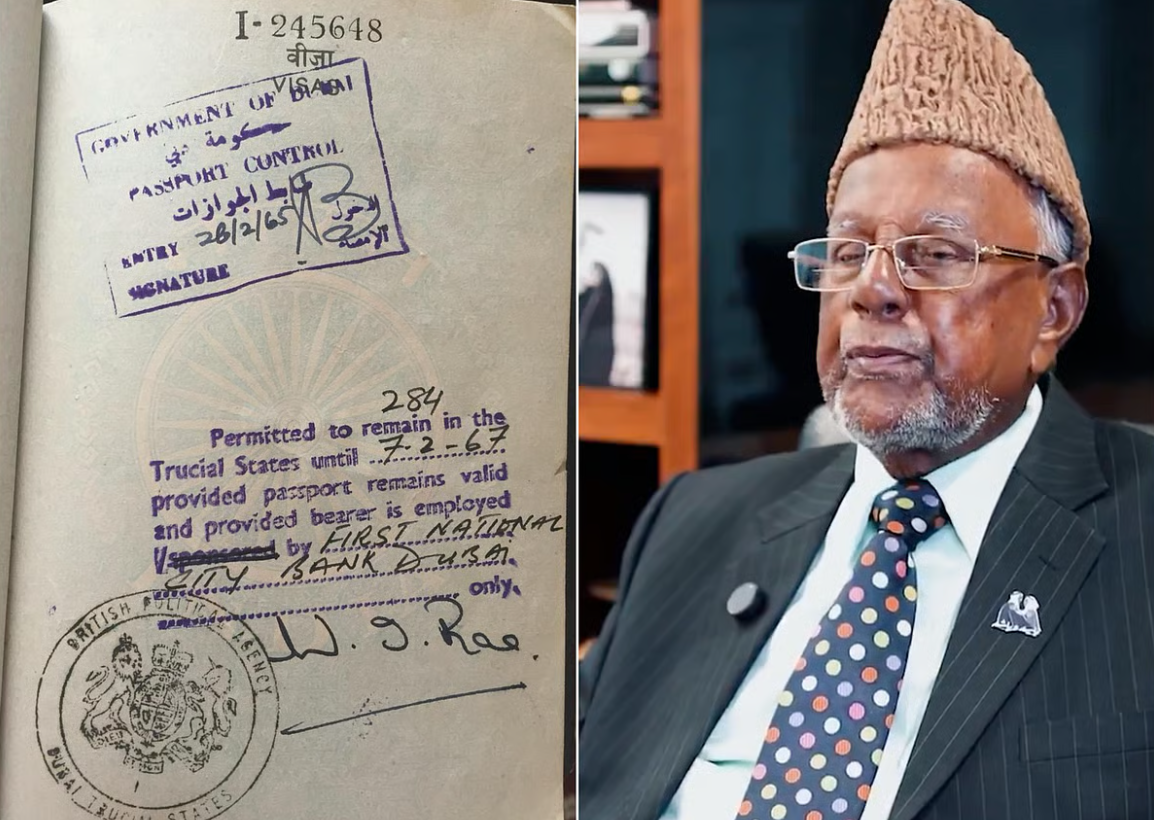 I-245648
वीजा
VISAS
GOVERNMENT OF DUBAI
حكومة دبي
PASSPORT CONTROL
ضابط الجوازات
ENTRY 28/2/65 الدخول
SIGNATURE الإمضاء
284
Permitted to remain in the
Trucial States until 7-2-67
provided passport remains valid
and provided bearer is employed
sponsored by FIRST NATIONAL
CITY BANK DUBAI
only.
Rae.
BRITISH POLITICAL AGENCY
DUBAI TRUCIAL STATES